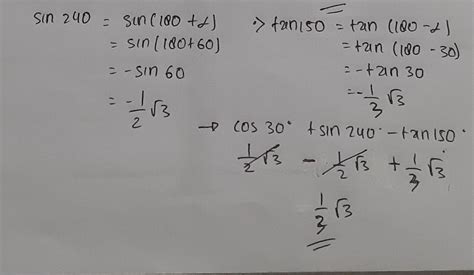 sin 240 = sin(180 + α)
= sin(180+60)
= -sin 60
= -1/2 √3
∴> tan150 = tan (180 - α)
= tan (180 - 30)
= -tan 30
= -1/3 √3
→ cos 30° + sin 240° - tan 150°
1/2 √3 - 1/2 √3 + 1/3 √3
1/3 √3